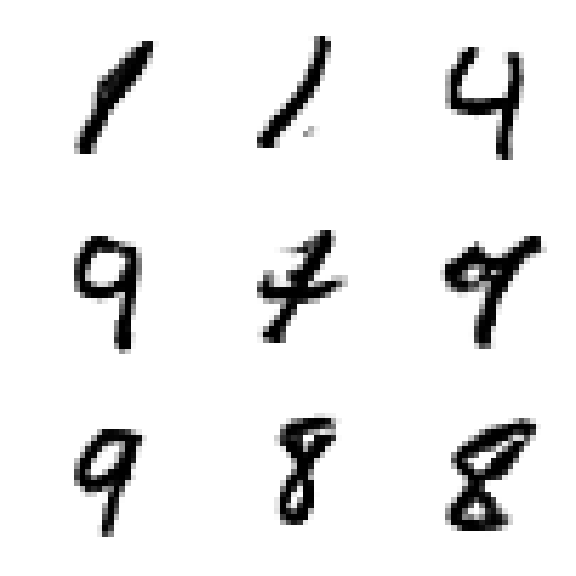 1 1 4
9 9
9 8 8